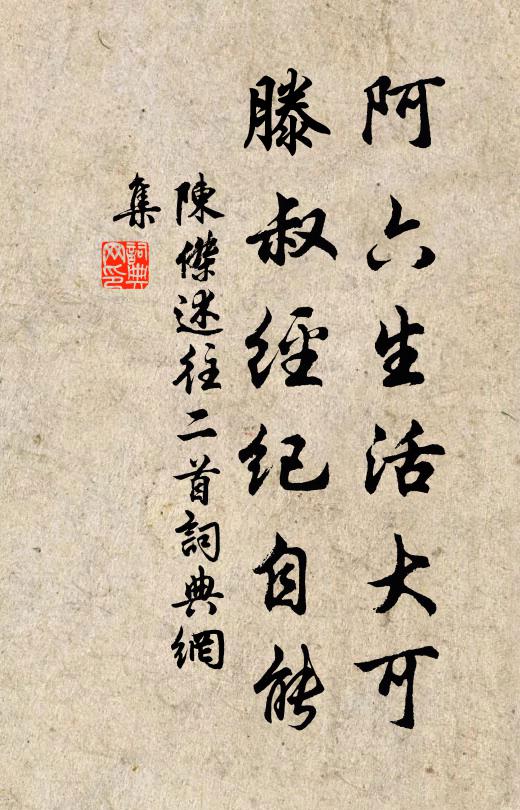 阿六生活大可
滕叔經纪自能
陳傑述往二首詞典網
集
詞典网印